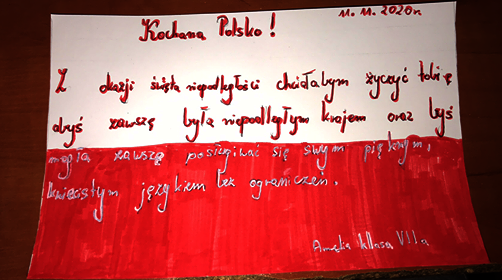 11.11.2020r.
Kochana Polsko!
Z okazji święta niepodległości chciałabym życzyć tobie
abyś zawsze była niepodległym krajem oraz byś
mogła zawsze posługiwać się swym pięknym,
kwiecistym językiem bez ograniczeń.
Amelia klasa VIIa